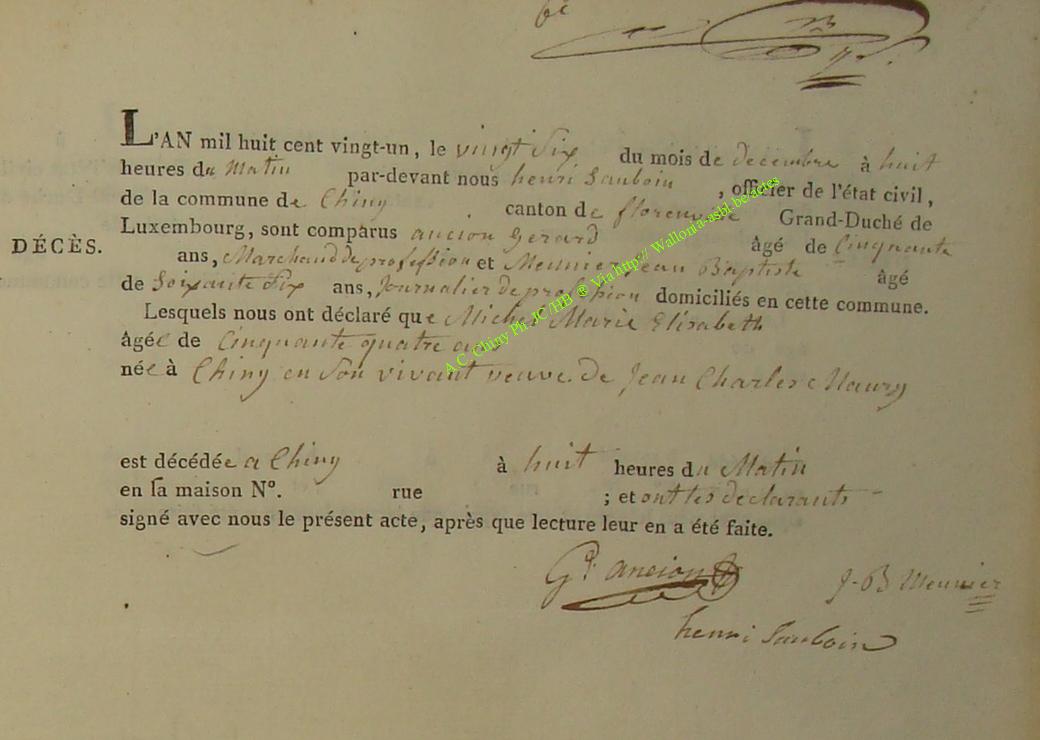 L'AN mil huit cent vingt-un, le vingt Six du mois de decembre à huit
heures du Matin par-devant nous henri Sauboin, officier de l'état civil,
de la commune de Chiny canton de florenville Grand-Duché de
DÉCÈS.
Luxembourg, sont comparus ancion Gerard âgé de Cinquante
ans, Marchand de profession et Meunier Jean Baptiste âgé
de Soixante Six ans, Journalier de profession domiciliés en cette commune.
Lesquels nous ont déclaré que Michel Marie Elisabeth
âgée de Cinquante quatre ans
née à Chiny en Son vivant veuve de Jean Charles Maury
est décédée a Chiny à huit heures du Matin
en sa maison N°. rue ; et ont les declarants
signé avec nous le présent acte, après que lecture leur en a été faite.
Gd ancion
J-B Meunier
henri Sauboin
A.C. Chiny Ph JC/HB ® Via http:// Wallonia-asbl.be/actes